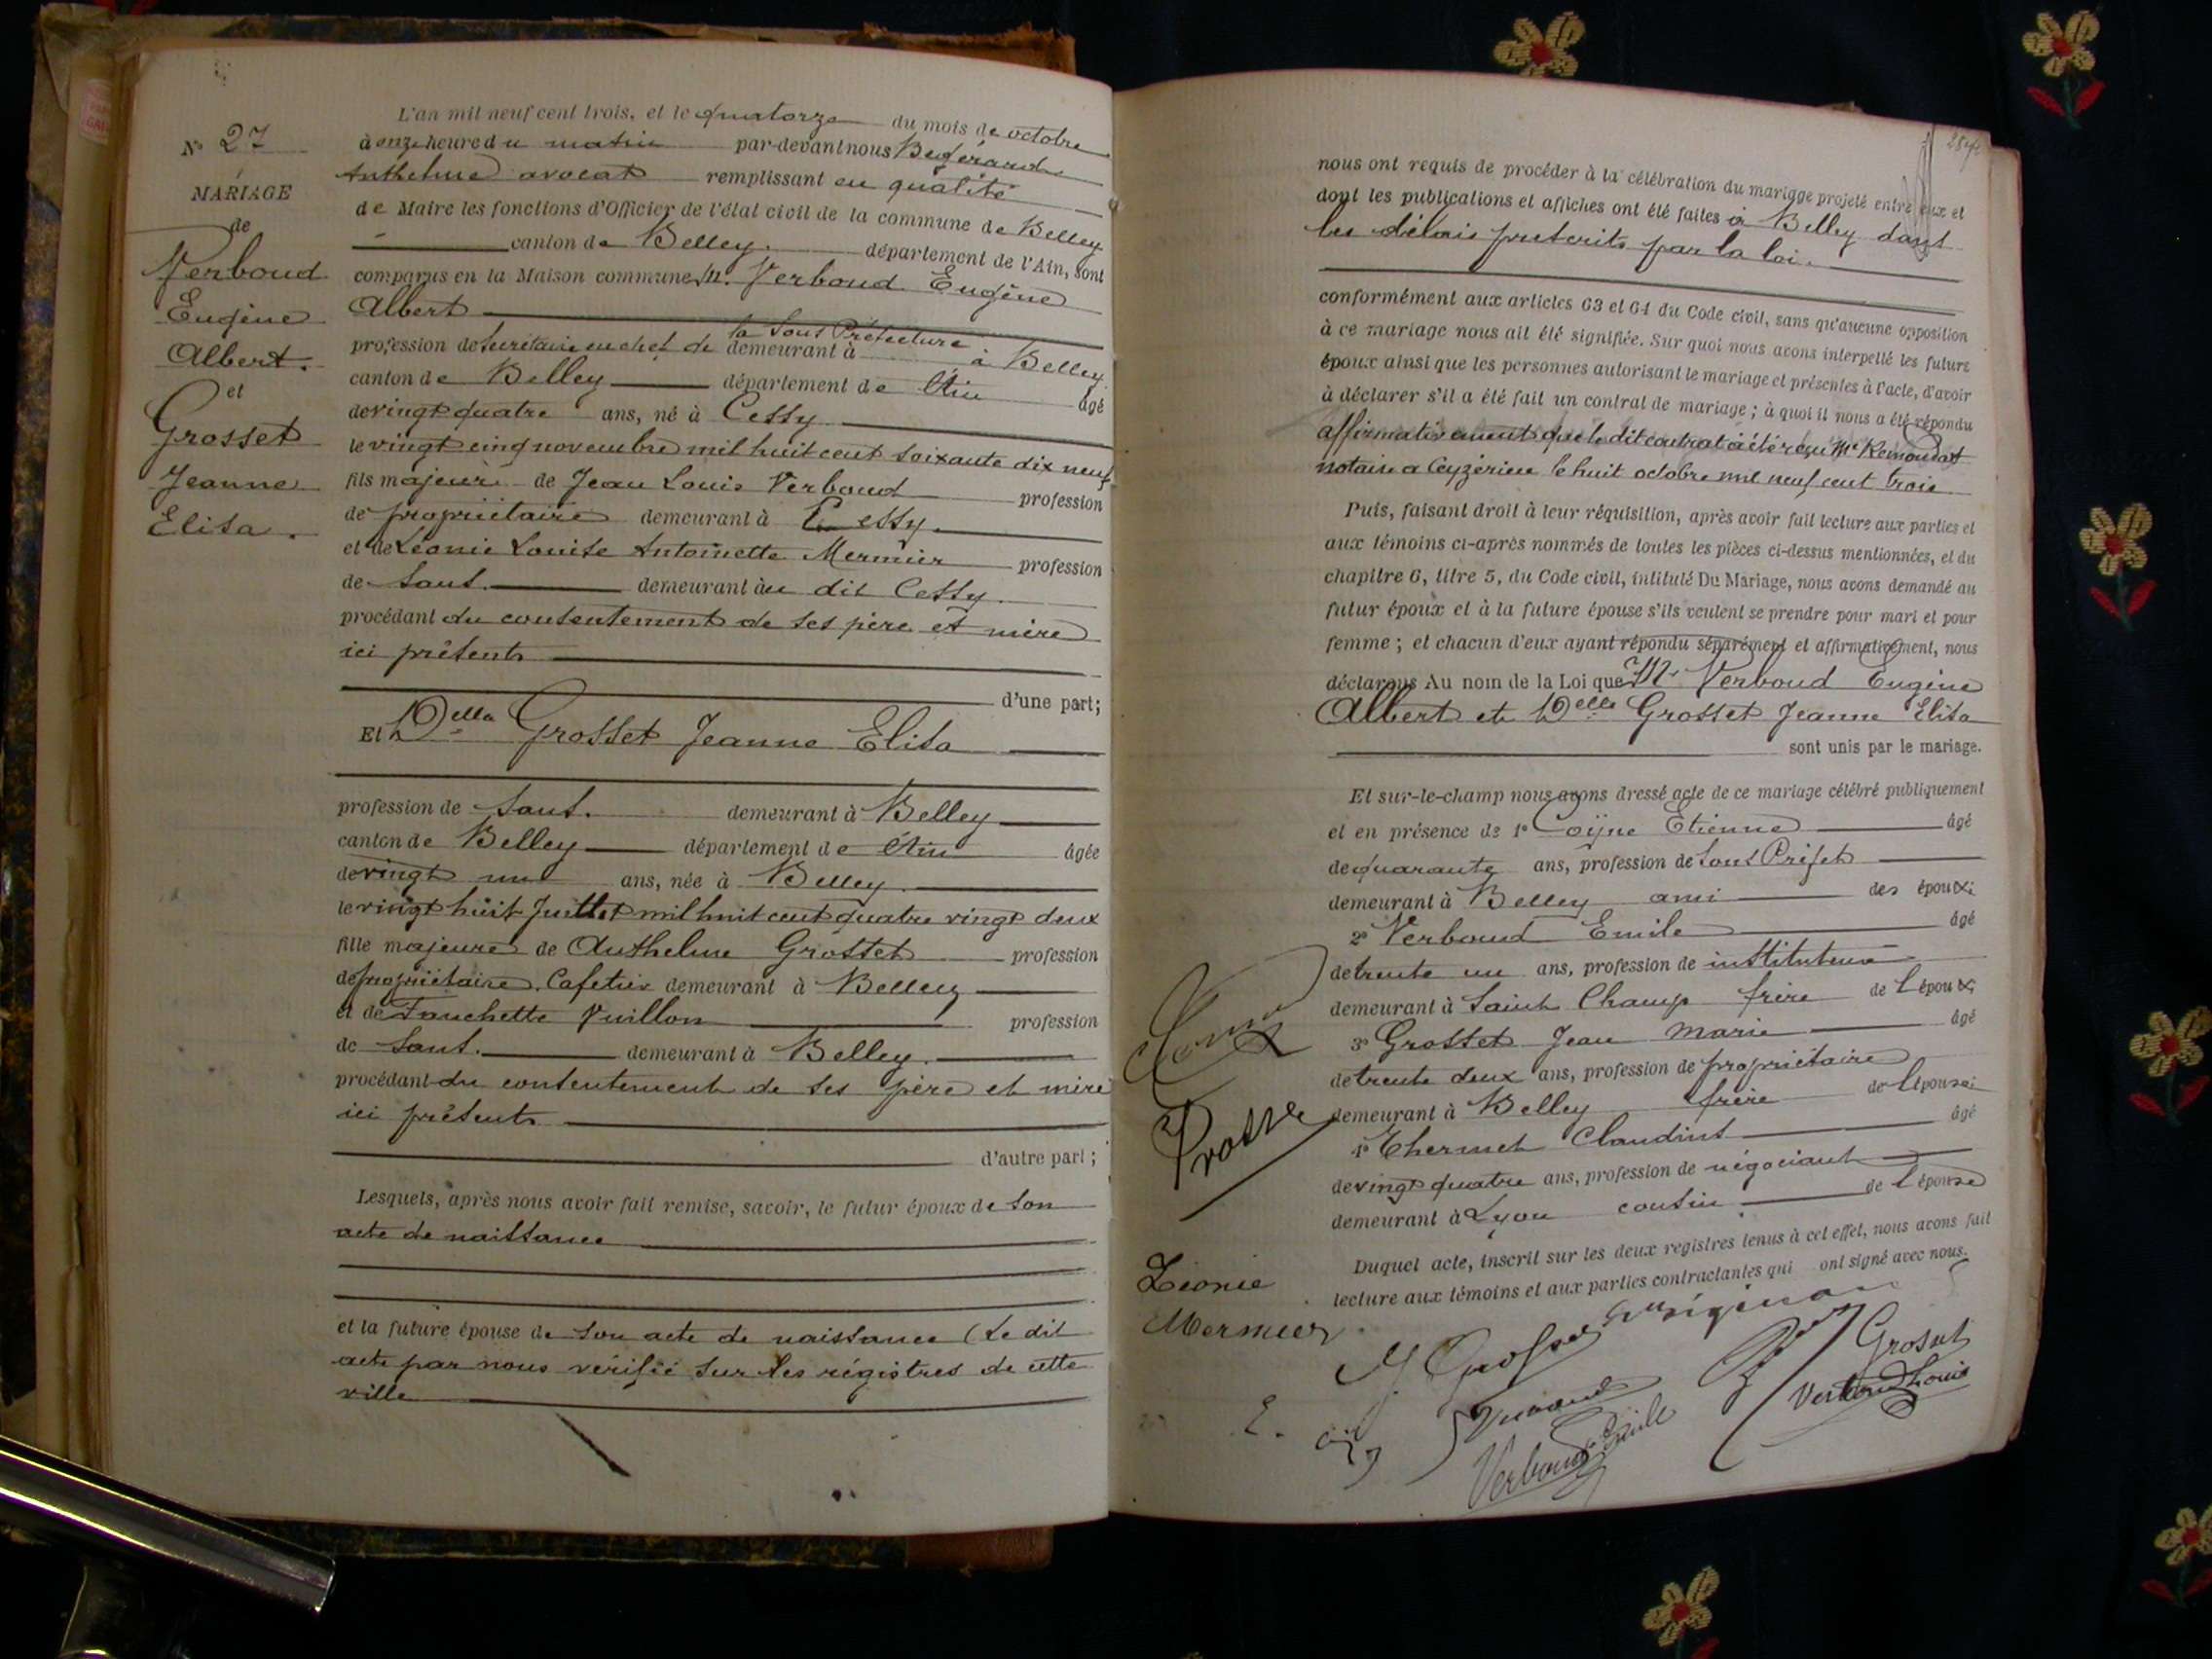 N° 27
MARIAGE
de
Verboud
Eugène
Albert.
et
Grosset
Jeanne
Elisa.
L'an mil neuf cent trois, et le quatorze du mois de octobre
à onze heure du matin par-devant nous
Anthelme avocat remplissant en qualité
de Maire les fonctions d'Officier de l'état civil de la commune de Belley
canton de Belley. département de l'Ain, sont
comparus en la Maison commune M. Verboud Eugène
Albert
profession de Secrétaire en chef de la Sous Préfecture demeurant à à Belley
canton de Belley département de l'Ain âgé
de vingt quatre ans, né à Cessy
le vingt cinq novembre mil huit cent soixante dix neuf
fils majeur de Jean Louis Verboud profession
de propriétaire demeurant à Cessy.
et de Léonie Louise Antoinette Mermier profession
de sans. demeurant au dit Cessy.
procédant du consentement de ses père et mère
ici présents
d'une part;
Et Delle Grosset Jeanne Elisa
profession de sans. demeurant à Belley
canton de Belley département de l'Ain âgée
de vingt un ans, née à Belley.
le vingt huit Juillet mil huit cent quatre vingt deux
fille majeure de Anthelme Grosset profession
de propriétaire. Cafetier demeurant à Belley
et de Fanchette Vuillon profession
de sans. demeurant à Belley.
procédant du consentement de ses père et mère
ici présents
d'autre part;
Lesquels, après nous avoir fait remise, savoir, le futur époux de son
acte de naissance
et la future épouse de son acte de naissance (Le dit
acte par nous vérifié sur les régistres de cette
ville
nous ont requis de procéder à la célébration du mariage projeté entre eux et
dont les publications et affiches ont été faites à Belley dans
les délais prescrits par la loi.
conformément aux articles 63 et 64 du Code civil, sans qu'aucune opposition
à ce mariage nous ait été signifiée. Sur quoi nous avons interpellé les futurs
époux ainsi que les personnes autorisant le mariage et présentes à l'acte, d'avoir
à déclarer s'il a été fait un contrat de mariage; à quoi il nous a été répondu
affirmativement que le dit contrat a été reçu Me Remondat
notaire a Ceyzérieu le huit octobre mil neuf cent trois
Puis, faisant droit à leur réquisition, après avoir fait lecture aux parties et
aux témoins ci-après nommés de toutes les pièces ci-dessus mentionnées, et du
chapitre 6, titre 5, du Code civil, intitulé Du Mariage, nous avons demandé au
futur époux et à la future épouse s'ils veulent se prendre pour mari et pour
femme; et chacun d'eux ayant répondu séparément et affirmativement, nous
déclarons Au nom de la Loi que Mr Verboud Eugène
Albert et Delle Grosset Jeanne Elisa
sont unis par le mariage.
Et sur-le-champ nous avons dressé acte de ce mariage célébré publiquement
et en présence de 1° Coÿne Etienne âgé
de quarante ans, profession de Sous Préfet
demeurant à Belley ami des époux;
2° Verboud Emile âgé
de trente un ans, profession de instituteur
demeurant à Saint Champ frère de l'époux;
3° Grosset Jean Marie âgé
de trente deux ans, profession de propriétaire
demeurant à Belley frère de l'épouse;
4° Thermet Claudius âgé
de vingt quatre ans, profession de négociant
demeurant à Lyon cousin de l'épouse
Duquel acte, inscrit sur les deux registres tenus à cet effet, nous avons fait
lecture aux témoins et aux parties contractantes qui ont signé avec nous.
Léonie
Mermier
Grosset
Verboud Louis
Verboud Emile